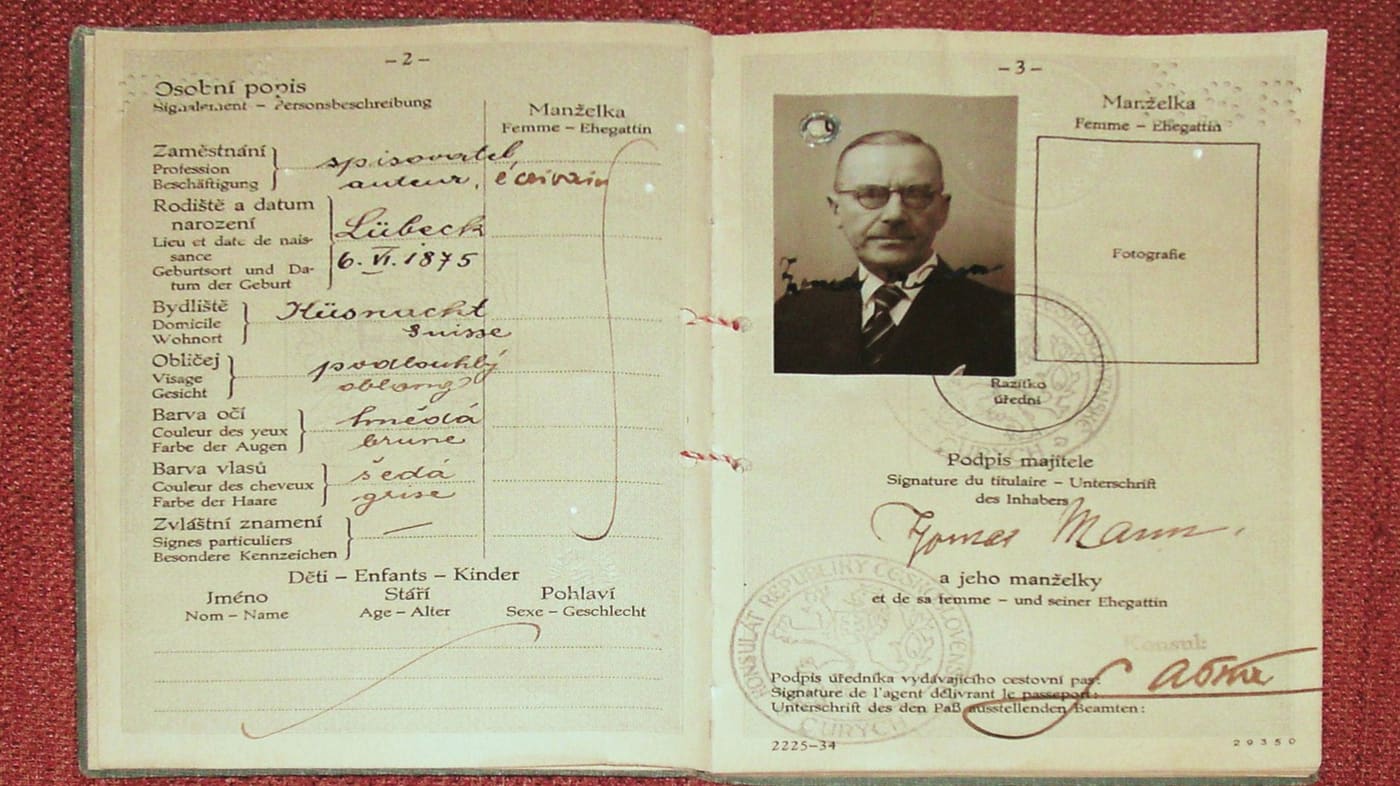 - 2 -
Osobní popis
Signalement – Personsbeschreibung
Manželka
Femme – Ehegattin
Zaměstnání
Profession
Beschäftigung
spisovatel,
auteur, écrivain
Rodiště a datum
narození
Lieu et date de nais-
sance
Geburtsort und Da-
tum der Geburt
Lübeck
6. VI. 1875
Bydliště
Domicile
Wohnort
Küsnacht
Suisse
Obličej
Visage
Gesicht
podlouhlý
oblong
Barva očí
Couleur des yeux
Farbe der Augen
hnědá
brune
Barva vlasů
Couleur des cheveux
Farbe der Haare
šedá
grise
Zvláštní znamení
Signes particuliers
Besondere Kennzeichen
—
Děti – Enfants – Kinder
Jméno
Nom – Name
Stáří
Age – Alter
Pohlaví
Sexe – Geschlecht
- 3 -
Manželka
Femme – Ehegattin
Fotografie
Razítko
úřední
Podpis majitele
Signature du titulaire – Unterschrift
des Inhabers
Thomas Mann.
a jeho manželky
et de sa femme – und seiner Ehegattin
KONSULÁT REPUBLIKY ČESKOSLOVENSKÉ
CURYCH
Konsul:
Podpis úředníka vydávajícího cestovní pas:
Signature de l'agent délivrant le passeport:
Unterschrift des den Paß ausstellenden Beamten:
2225-34
29350